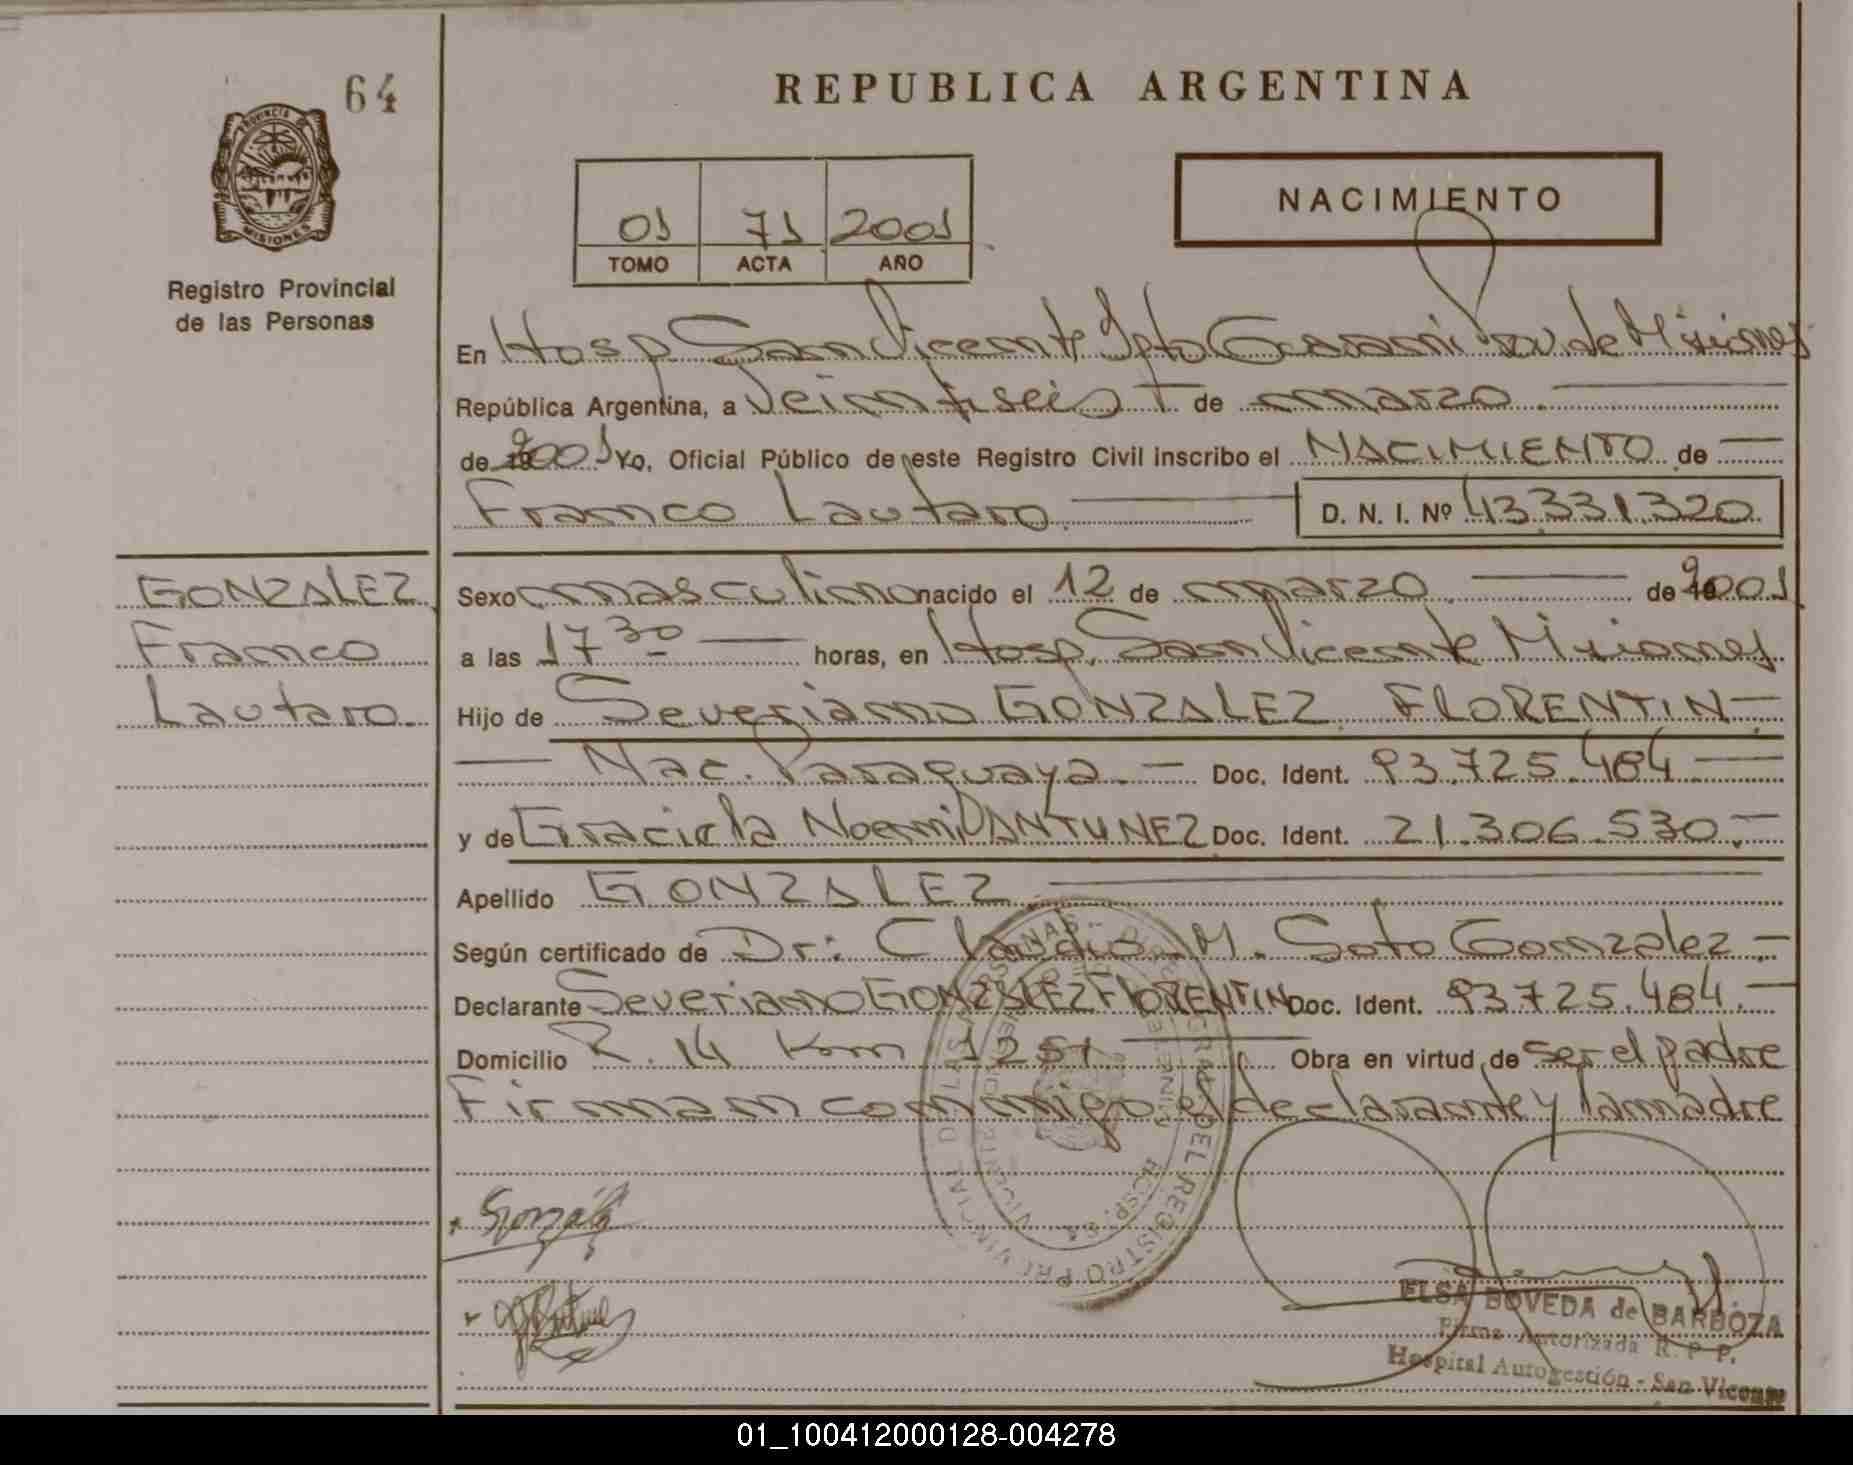 64
REPUBLICA ARGENTINA
PROVINCIA DE
MISIONES
Registro Provincial
de las Personas
01 71 2001
TOMO ACTA AÑO
NACIMIENTO
En Hosp San Vicente Dpto Guaraní Prov. de Misiones
República Argentina, a Veintiseis de marzo
de 2001 Yo, Oficial Público de este Registro Civil inscribo el NACIMIENTO de
Franco Lautaro D. N. I. Nº 43.331.320
GONZALEZ
Franco
Lautaro
Sexo masculino nacido el 12 de marzo de 2001
a las 17 30 horas, en Hosp. San Vicente Misiones
Hijo de Severiano GONZALEZ FLORENTIN
Nac. Paraguaya. Doc. Ident. 93.725.484
y de Graciela Noemi ANTUNEZ Doc. Ident. 21.306.530
Apellido GONZALEZ
Según certificado de Dr: Claudio M. Soto Gonzalez
Declarante Severiano GONZALEZ FLORENTIN Doc. Ident. 93.725.484
Domicilio R. 14 Km 1251 Obra en virtud de ser el padre
Firman conmigo el declarante y la madre
González
ELSA BOVEDA de BARBOZA
Firma Autorizada R. P. P.
Hospital Autogestión - San Vicente
01_100412000128-004278